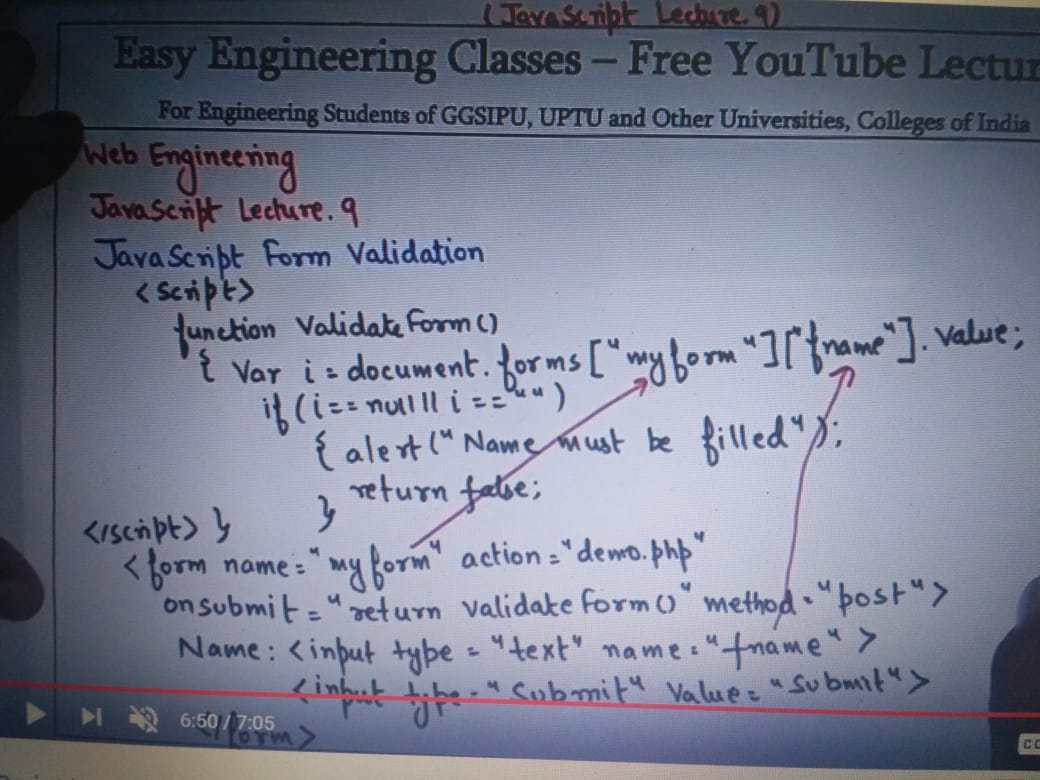 (JavaScript Lecture.9)
Easy Engineering Classes – Free YouTube Lectur
For Engineering Students of GGSIPU, UPTU and Other Universities, Colleges of India
Web Engineering
JavaScript Lecture.9
JavaScript Form Validation
<script>
function ValidateForm()
{ Var i = document.forms["myform"]["fname"].value;
if(i==null || i=="")
{ alert("Name must be filled");
return false;
}
</script> }
<form name="myform" action="demo.php"
onsubmit="return validateform()" method="post">
Name: <input type="text" name="fname">
<input type="Submit" Value="Submit">
6:50 / 7:05
</form>